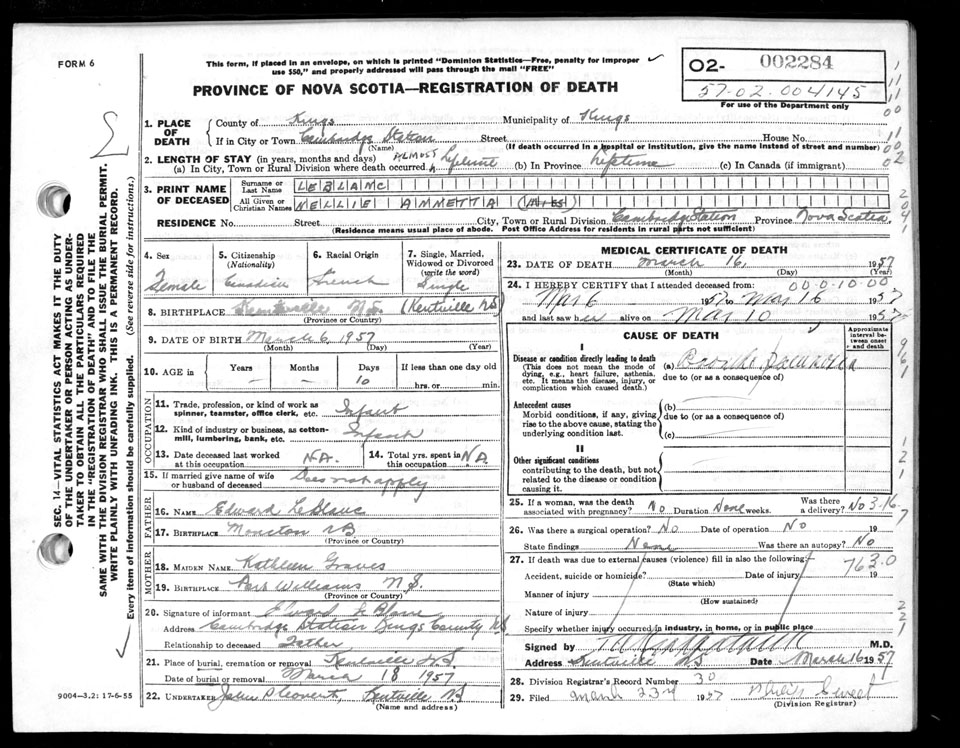 FORM 6
This form, if placed in an envelope, on which is printed "Dominion Statistics—Free, penalty for improper
use $50," and properly addressed will pass through the mail "FREE"
O2- 002284
57-02-004145
For use of the Department only
PROVINCE OF NOVA SCOTIA—REGISTRATION OF DEATH
1. PLACE OF DEATH
County of Kings Municipality of Kings
If in City or Town Cambridge Station Street House No.
(Name) (If death occurred in a hospital or institution, give the name instead of street and number)
2. LENGTH OF STAY (in years, months and days) ALMOST
(a) In City, Town or Rural Division where death occurred Lifetime (b) In Province Lifetime (c) In Canada (if immigrant)
3. PRINT NAME OF DECEASED
Surname or Last Name LEBLANC
All Given or Christian Names NELLIE ANNETTA
RESIDENCE No. Street City, Town or Rural Division Cambridge Station Province Nova Scotia
(Residence means usual place of abode. Post Office Address for residents in rural parts not sufficient)
4. Sex Female
5. Citizenship (Nationality) Canadian
6. Racial Origin French
7. Single, Married, Widowed or Divorced (write the word) Single
8. BIRTHPLACE Kentville N.S. (Kentville NS)
(Province or Country)
9. DATE OF BIRTH March 6, 1957
(Month) (Day) (Year)
10. AGE in Years – Months – Days 10 If less than one day old hrs. or min.
OCCUPATION
11. Trade, profession, or kind of work as spinner, teamster, office clerk, etc. Infant
12. Kind of industry or business, as cotton-mill, lumbering, bank, etc. Infant
13. Date deceased last worked at this occupation N.A. 14. Total yrs. spent in this occupation N A
15. If married give name of wife or husband of deceased Does not apply
FATHER
16. NAME Edward LeBlanc
17. BIRTHPLACE Moncton N B.
(Province or Country)
MOTHER
18. MAIDEN NAME Kathleen Graves
19. BIRTHPLACE Port Williams N. S.
(Province or Country)
20. Signature of informant Edward Le Blanc
Address Cambridge Station Kings County NS
Relationship to deceased Father
21. Place of burial, cremation or removal Kentville N.S.
Date of burial or removal March 18 1957
22. UNDERTAKER John P Kentville NS
(Name and address)
MEDICAL CERTIFICATE OF DEATH
23. DATE OF DEATH March 16, 1957
(Month) (Day) (Year)
24. I HEREBY CERTIFY that I attended deceased from: 00-0-10-00
Mar 6 1957 to Mar 16 1957
and last saw her alive on Mar 10 1957
CAUSE OF DEATH
Approximate interval between onset and death
I
Disease or condition directly leading to death
(This does not mean the mode of dying, e.g., heart failure, asthenia, etc. It means the disease, injury, or complication which caused death.)
(a)
due to (or as a consequence of)
Antecedent causes
Morbid conditions, if any, giving rise to the above cause, stating the underlying condition last.
(b)
due to (or as a consequence of)
(c)
II
Other significant conditions
contributing to the death, but not related to the disease or condition causing it.
25. If a woman, was the death associated with pregnancy? No Duration None weeks. Was there a delivery? No
26. Was there a surgical operation? No Date of operation No 19
State findings None Was there an autopsy? No
27. If death was due to external causes (violence) fill in also the following: 763.0
Accident, suicide or homicide? Date of injury 19
(State which)
Manner of injury
(How sustained)
Nature of injury
Specify whether injury occurred in industry, in home, or in public place
Signed by M.D.
Address Kentville NS Date March 16 1957
28. Division Registrar's Record Number 30
29. Filed March 23rd 1957 Sweet
(Division Registrar)
SEC. 14—VITAL STATISTICS ACT MAKES IT THE DUTY
OF THE UNDERTAKER OR PERSON ACTING AS UNDER-
TAKER TO OBTAIN ALL THE PARTICULARS REQUIRED
IN THE "REGISTRATION OF DEATH" AND TO FILE THE
SAME WITH THE DIVISION REGISTRAR WHO SHALL ISSUE THE BURIAL PERMIT.
WRITE PLAINLY WITH UNFADING INK. THIS IS A PERMANENT RECORD.
Every item of information should be carefully supplied. (See reverse side for instructions.)
9004-3.2: 17-6-55